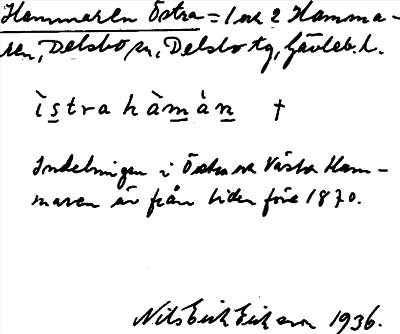 Hammaren Östra = 1 ok 2 Hamma-
ren, Delsbo sn, Delsbo tg, Gävleb. l.
ìstra hàmàn †
Indelningen i Östra ok Västra Ham-
maren är från tiden före 1870.
Nils Erik Eriksson 1936.